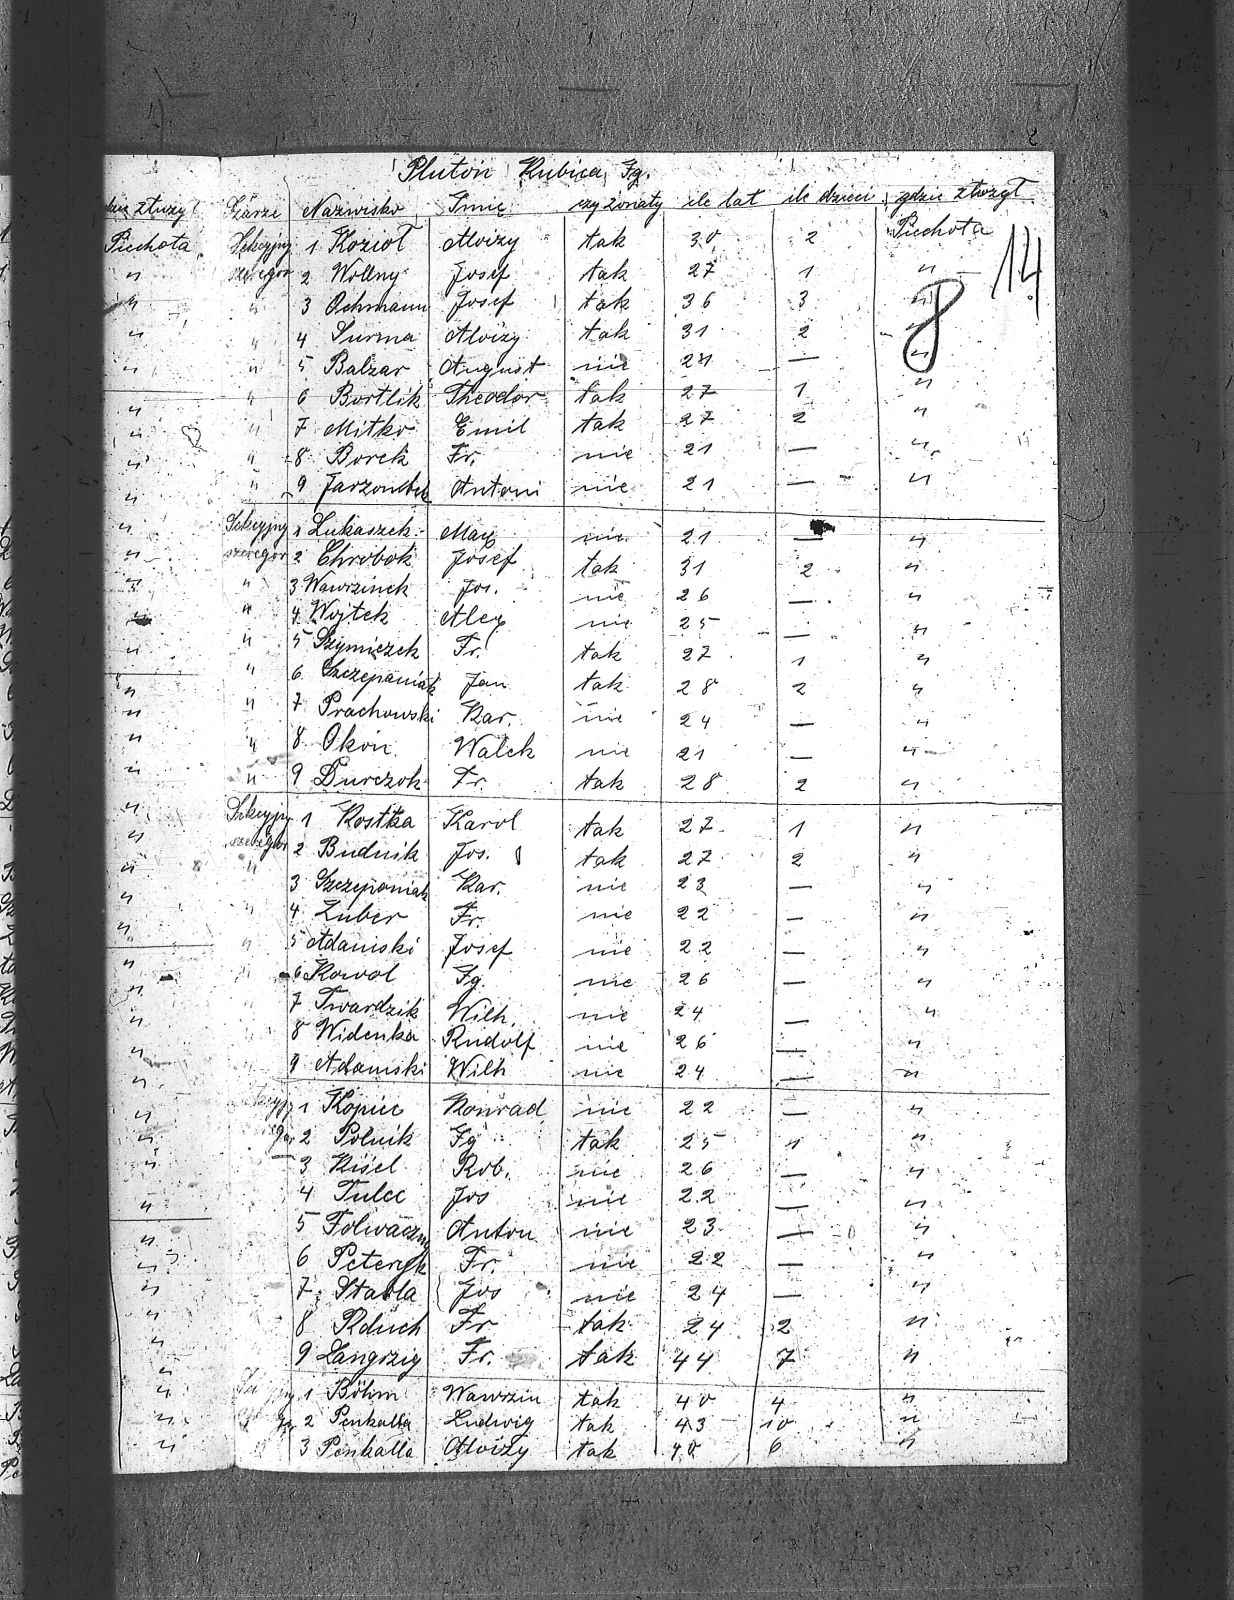 Pluton Kubica Jg.
Szarże Nazwisko Imię czy żonaty ile lat ile dzieci gdzie służył
Sekcyjny 1 Kozioł Aloizy tak 30 2 Piechota 14
szeregow 2 Wollny Josef tak 27 1 "
" 3 Ochmann Josef tak 36 3 " 8
" 4 Surma Aloizy tak 31 2 "
" 5 Balzar August nie 21 — "
" 6 Bortlik Theodor tak 27 1 "
" 7 Mitko Emil tak 27 2 "
" 8 Borek Fr. nie 21 — "
" 9 Jarzombek Antoni nie 21 — "
Sekcyjny 1 Lukaszek Max nie 21 — "
szeregow 2 Chrobok Josef tak 31 2 "
" 3 Wawrzinek Jos. nie 26 — "
" 4 Wojtek Alex nie 25 — "
" 5 Szymiczek Fr. tak 27 1 "
" 6 Szczepaniak Jan tak 28 2 "
" 7 Prachowski Kar. nie 24 — "
" 8 Okoń Walek nie 21 — "
" 9 Durczok Fr. tak 28 2 "
Sekcyjny 1 Kostka Karol tak 27 1 "
szeregow 2 Budnik Jos. tak 27 2 "
" 3 Szczeponiak Kar. nie 23 — "
" 4 Zuber Fr. nie 22 — "
" 5 Adamski Josef nie 22 — "
6 Kowol Jg. nie 26 — "
7 Twardzik Wilh. nie 24 — "
8 Widenka Rudolf nie 26 — "
9 Adamski Wilh nie 24 — "
1 Kopiec Konrad nie 22 — "
2 Polnik Jg tak 25 1 "
3 Kisel Rob. nie 26 — "
4 Tulec Jos nie 22 — "
5 Folwaczny Anton nie 23 — "
6 Peteryk Fr. nie 22 — "
7 Stabla Jos nie 24 — "
8 Rduch Fr tak 24 2 "
9 Langrzig Fr. tak 44 7 "
1 Böhm Wawrzin tak 40 4 "
2 Penkalla Ludwig tak 43 10 "
3 Penkalla Aloizy tak 40 6 "
służył
Piechota